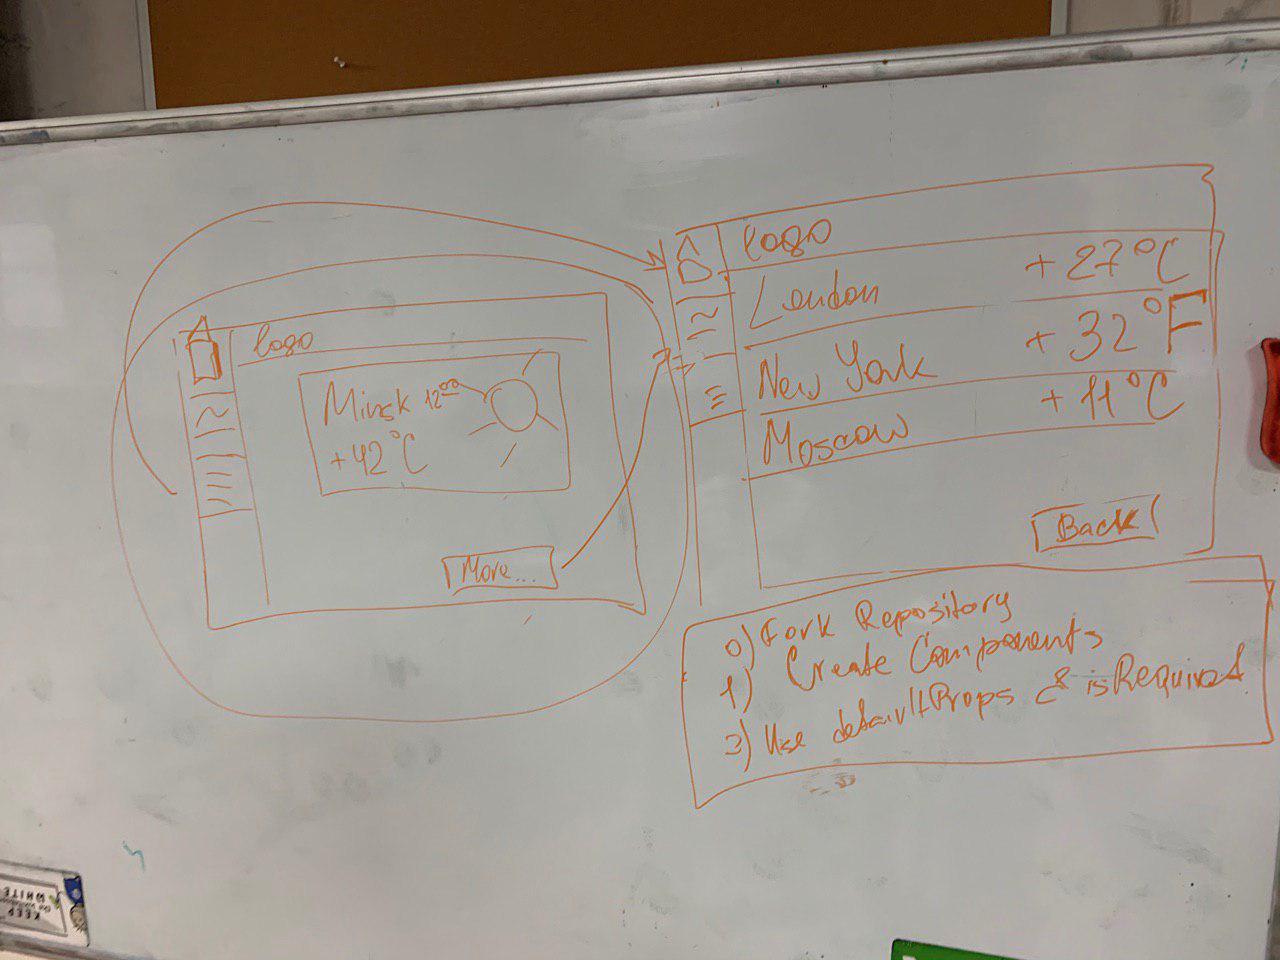 logo
Minsk 12⁰⁰
+42°C
More...
logo
London +27°C
New York +32°F
Moscow +11°C
Back
0) Fork Repository
1) Create Components
3) Use defaultProps & isRequired
KEEP
WHITE